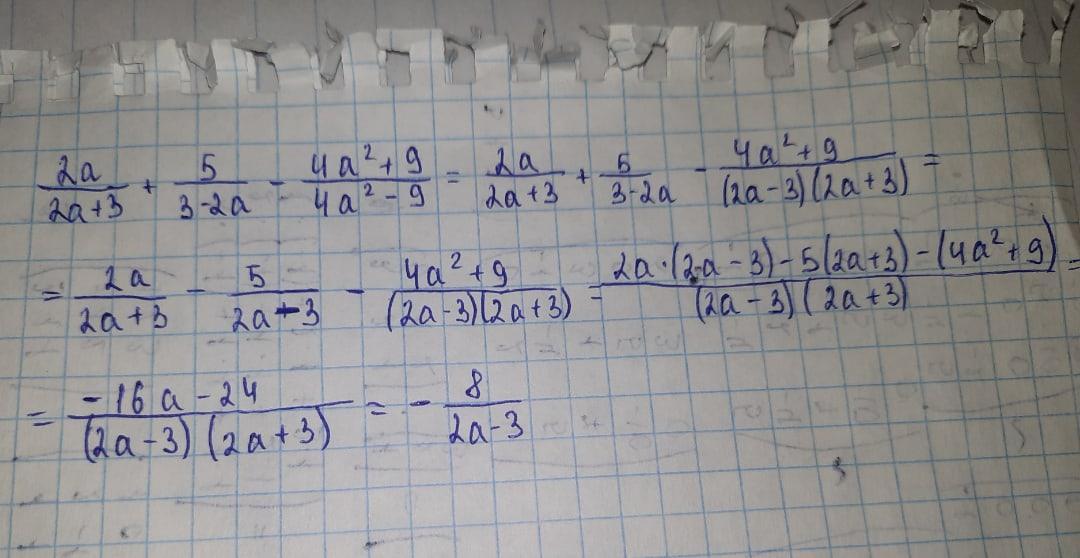 2a/(2a+3) + 5/(3-2a) - (4a²+9)/(4a²-9) = 2a/(2a+3) + 5/(3-2a) - (4a²+9)/((2a-3)(2a+3)) =
= 2a/(2a+3) - 5/(2a-3) - (4a²+9)/((2a-3)(2a+3)) = (2a·(2a-3)-5(2a+3)-(4a²+9))/((2a-3)(2a+3)) =
= (-16a-24)/((2a-3)(2a+3)) = -8/(2a-3)